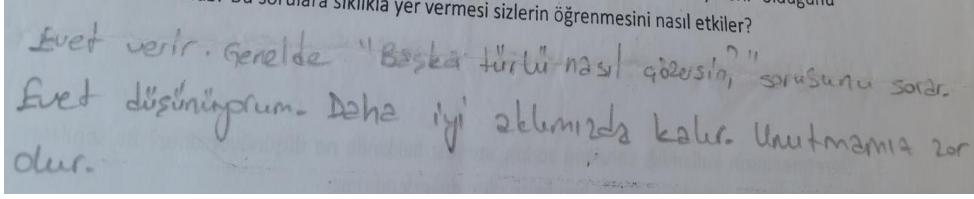 sorulara sıklıkla yer vermesi sizlerin öğrenmesini nasıl etkiler?
Evet verir. Genelde "Başka türlü nasıl çözersin?," sorusunu sorar.
Evet düşünüyorum. Daha iyi aklımızda kalır. Unutmamız zor
olur.